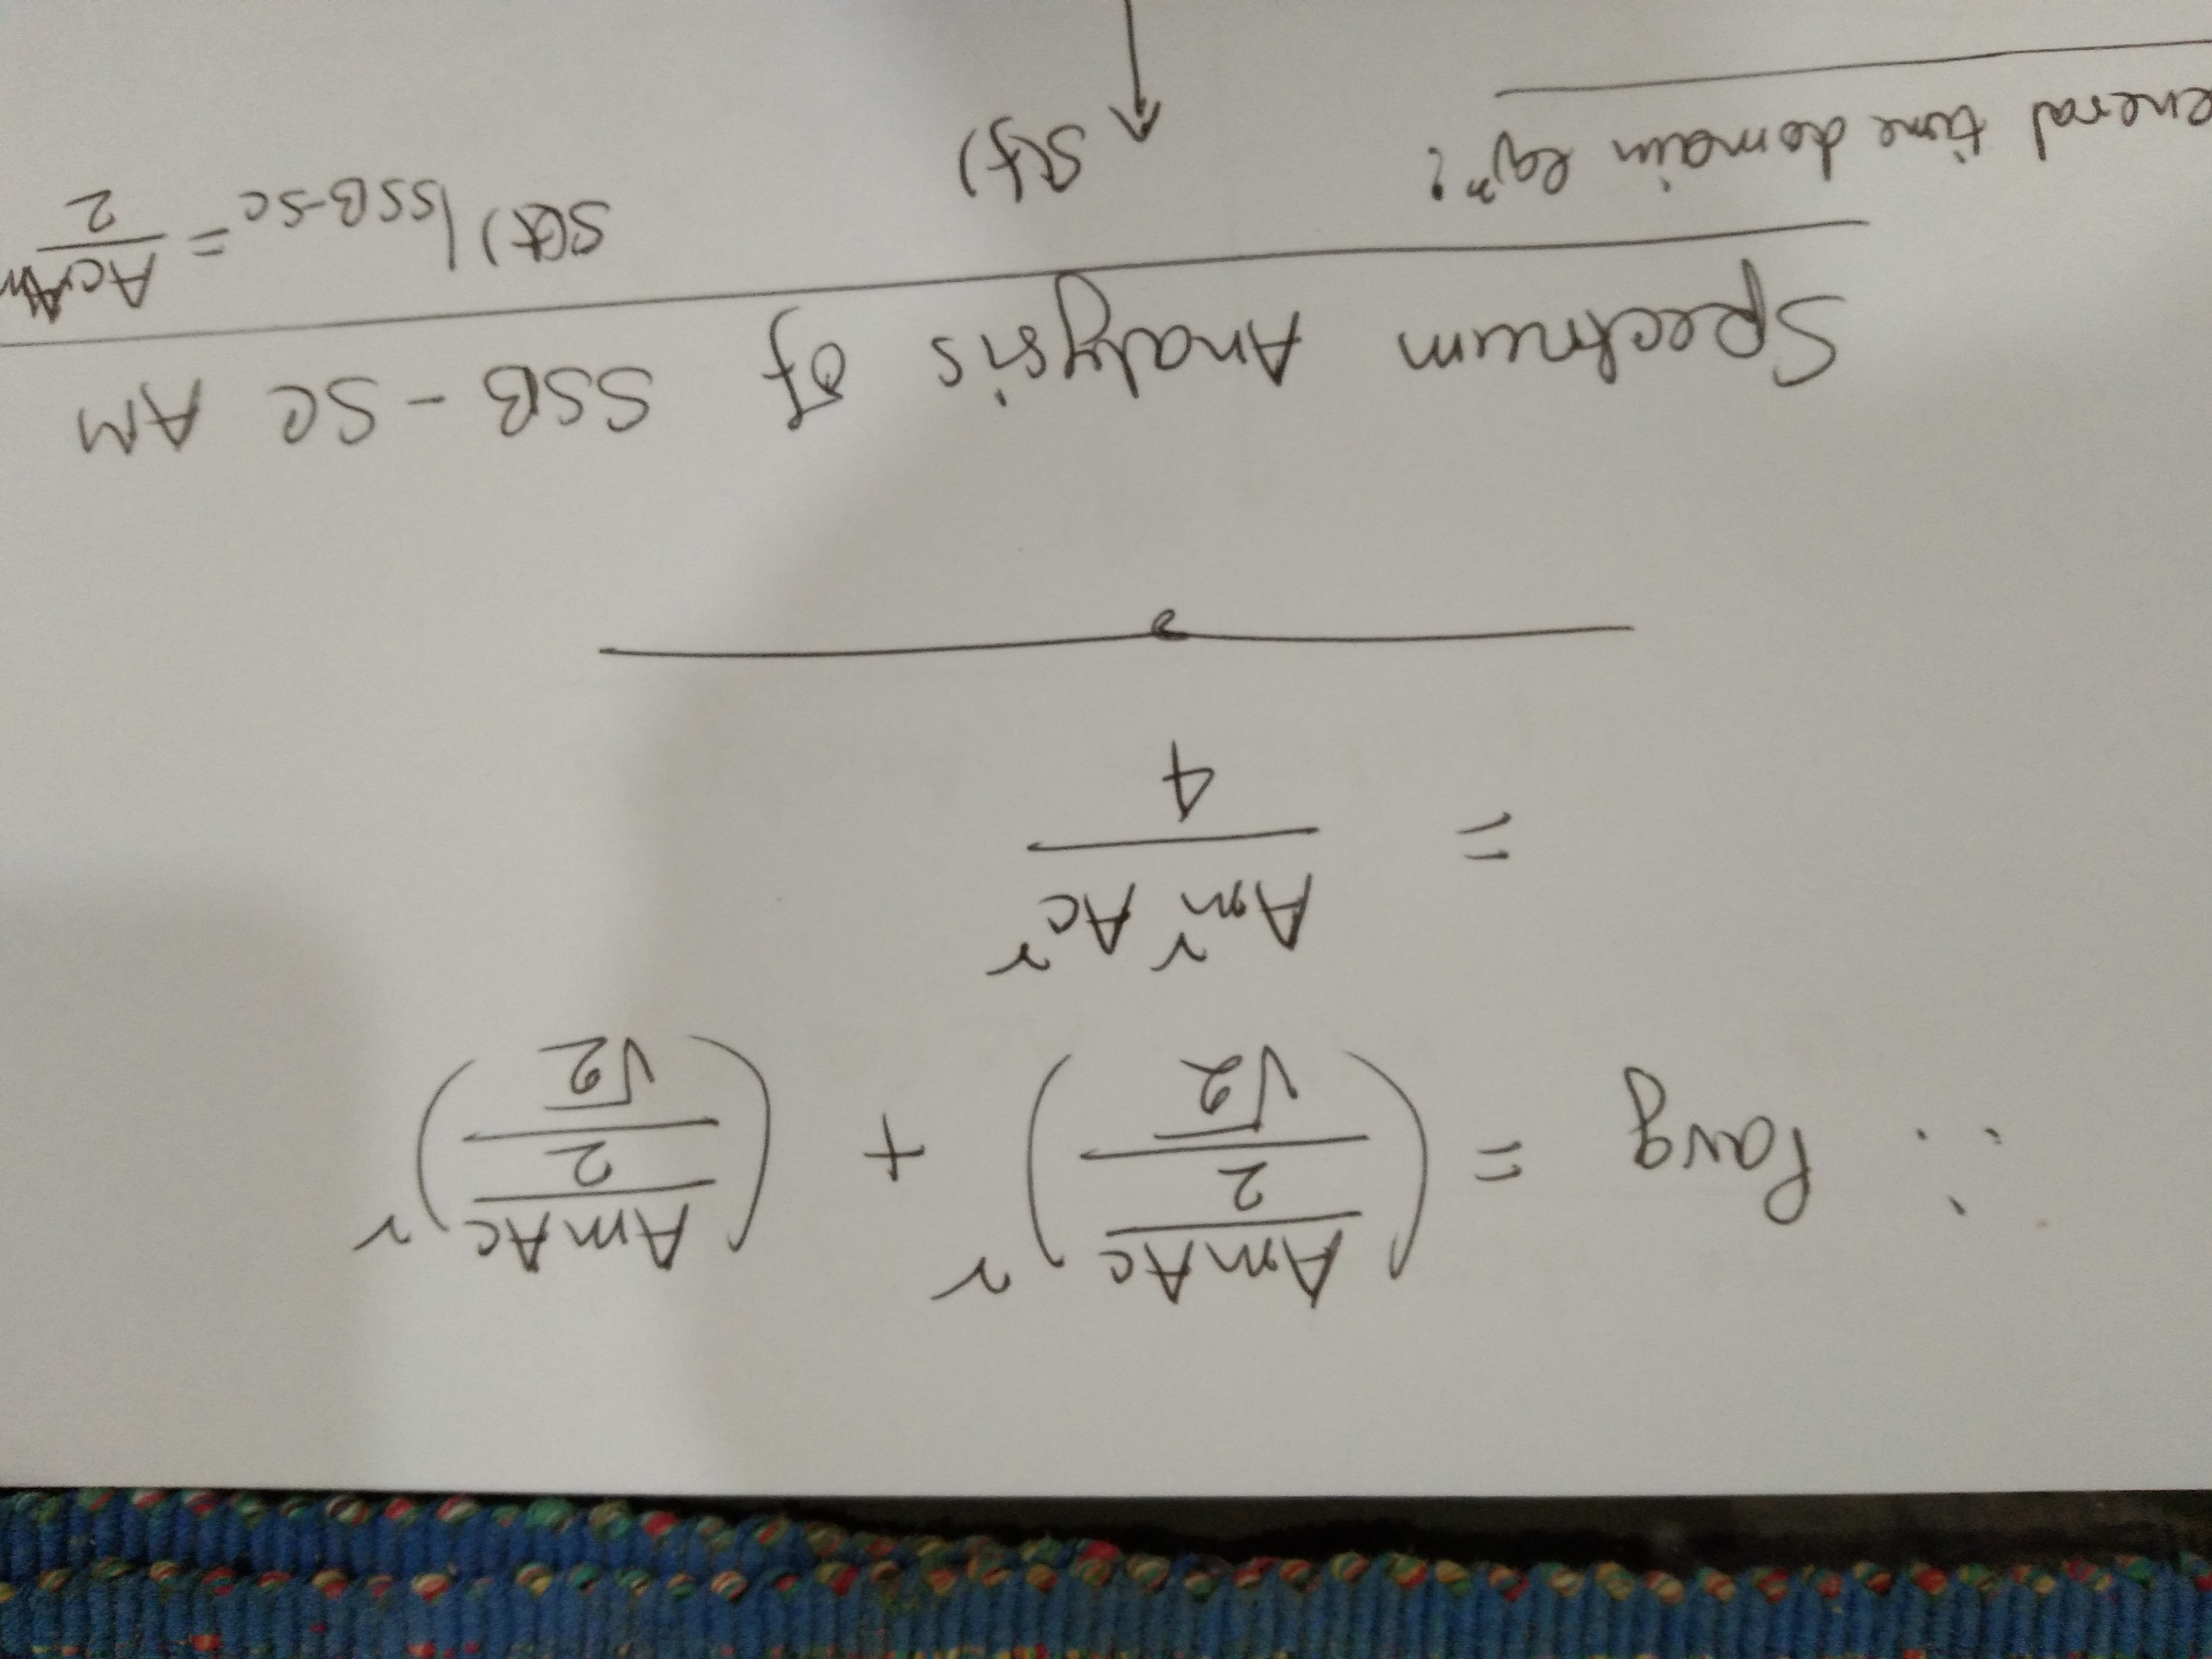 ∴ Pavg = ((AmAc/2)/√2)² + ((AmAc/2)/√2)²
= Am² Ac²/4
Spectrum Analysis of SSB-SC AM
eneral time domain eqⁿ:
S(f)
S(t)|SSB-SC = AcAm/2